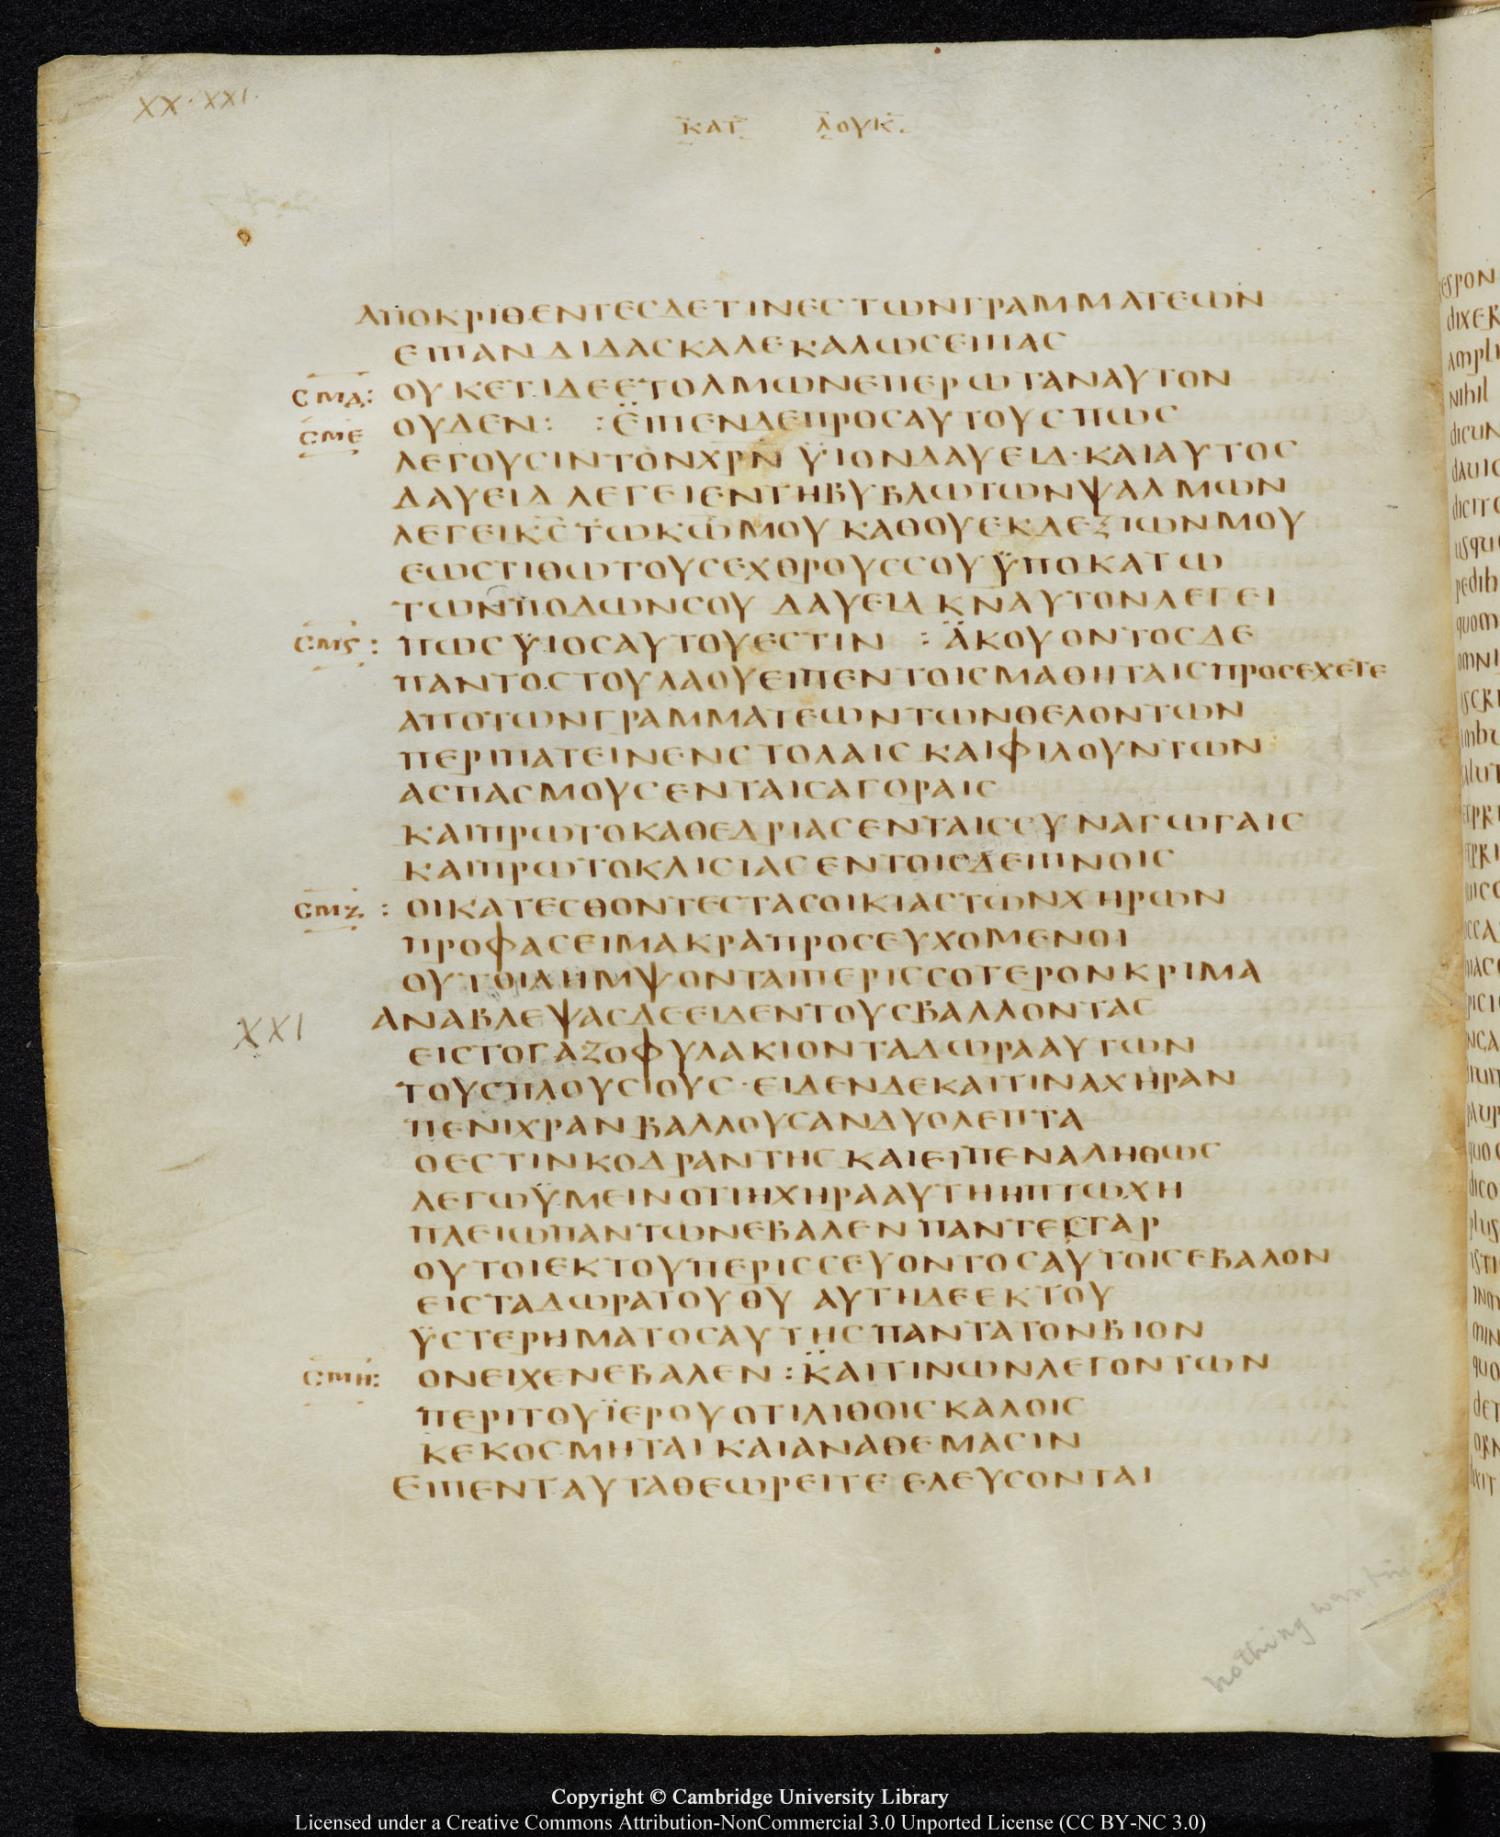 XX·XXI.
ΚΑΤ ΛΟΥΚ.
ΑΠΟΚΡΙΘΕΝΤΕΣΔΕΤΙΝΕΣΤΩΝΓΡΑΜΜΑΤΕΩΝ
ΕΙΠΑΝΔΙΔΑΣΚΑΛΕΚΑΛΩΣΕΙΠΑΣ
ϹΜΔ: ΟΥΚΕΤΙΔΕΕΤΟΛΜΩΝΕΠΕΡΩΤΑΝΑΥΤΟΝ
ϹΜΕ ΟΥΔΕΝ: :ΕΙΠΕΝΔΕΠΡΟΣΑΥΤΟΥΣΠΩΣ
ΛΕΓΟΥΣΙΝΤΟΝΧΡΝ ΫΙΟΝΔΑΥΕΙΔ·ΚΑΙΑΥΤΟΣ
ΔΑΥΕΙΔ ΛΕΓΕΙΕΝΤΗΒΥΒΛΩΤΩΝΨΑΛΜΩΝ
ΛΕΓΕΙΚΣΤΩΚΩΜΟΥ ΚΑΘΟΥΕΚΔΕΞΙΩΝΜΟΥ
ΕΩΣΤΙΘΩΤΟΥΣΕΧΘΡΟΥΣΣΟΥ ΫΠΟΚΑΤΩ
ΤΩΝΠΟΔΩΝΣΟΥ ΔΑΥΕΙΔ ΚΝΑΥΤΟΝΛΕΓΕΙ
ϹΜϚ: ΠΩΣΫΙΟΣΑΥΤΟΥΕΣΤΙΝ :ΑΚΟΥΟΝΤΟΣΔΕ
ΠΑΝΤΟΣΤΟΥΛΑΟΥΕΙΠΕΝΤΟΙΣΜΑΘΗΤΑΙΣΠΡΟΣΕΧΕΤΕ
ΑΠΟΤΩΝΓΡΑΜΜΑΤΕΩΝΤΩΝΘΕΛΟΝΤΩΝ
ΠΕΡΙΠΑΤΕΙΝΕΝΣΤΟΛΑΙΣ ΚΑΙΦΙΛΟΥΝΤΩΝ
ΑΣΠΑΣΜΟΥΣΕΝΤΑΙΣΑΓΟΡΑΙΣ
ΚΑΙΠΡΩΤΟΚΑΘΕΔΡΙΑΣΕΝΤΑΙΣΣΥΝΑΓΩΓΑΙΣ
ΚΑΙΠΡΩΤΟΚΛΙΣΙΑΣΕΝΤΟΙΣΔΕΙΠΝΟΙΣ
ϹΜΖ: ΟΙΚΑΤΕΣΘΟΝΤΕΣΤΑΣΟΙΚΙΑΣΤΩΝΧΗΡΩΝ
ΠΡΟΦΑΣΕΙΜΑΚΡΑΠΡΟΣΕΥΧΟΜΕΝΟΙ
ΟΥΤΟΙΛΗΜΨΟΝΤΑΙΠΕΡΙΣΣΟΤΕΡΟΝΚΡΙΜΑ
XXI ΑΝΑΒΛΕΨΑΣΔΕΕΙΔΕΝΤΟΥΣΒΑΛΛΟΝΤΑΣ
ΕΙΣΤΟΓΑΖΟΦΥΛΑΚΙΟΝΤΑΔΩΡΑΑΥΤΩΝ
ΤΟΥΣΠΛΟΥΣΙΟΥΣ·ΕΙΔΕΝΔΕΚΑΙΤΙΝΑΧΗΡΑΝ
ΠΕΝΙΧΡΑΝΒΑΛΛΟΥΣΑΝΔΥΟΛΕΠΤΑ
ΟΕΣΤΙΝΚΟΔΡΑΝΤΗΣ ΚΑΙΕΙΠΕΝΑΛΗΘΩΣ
ΛΕΓΩΫΜΕΙΝΟΤΙΗΧΗΡΑΑΥΤΗΗΠΤΩΧΗ
ΠΛΕΙΩΠΑΝΤΩΝΕΒΑΛΕΝΠΑΝΤΕΣΓΑΡ
ΟΥΤΟΙΕΚΤΟΥΠΕΡΙΣΣΕΥΟΝΤΟΣΑΥΤΟΙΣΕΒΑΛΟΝ
ΕΙΣΤΑΔΩΡΑΤΟΥΘΥ ΑΥΤΗΔΕΕΚΤΟΥ
ΫΣΤΕΡΗΜΑΤΟΣΑΥΤΗΣΠΑΝΤΑΤΟΝΒΙΟΝ
ϹΜΗ: ΟΝΕΙΧΕΝΕΒΑΛΕΝ:ΚΑΙΤΙΝΩΝΛΕΓΟΝΤΩΝ
ΠΕΡΙΤΟΥΪΕΡΟΥΟΤΙΛΙΘΟΙΣΚΑΛΟΙΣ
ΚΕΚΟΣΜΗΤΑΙΚΑΙΑΝΑΘΕΜΑΣΙΝ
ΕΙΠΕΝΤΑΥΤΑΘΕΩΡΕΙΤΕ ΕΛΕΥΣΟΝΤΑΙ
nothing
Copyright © Cambridge University Library
Licensed under a Creative Commons Attribution-NonCommercial 3.0 Unported License (CC BY-NC 3.0)